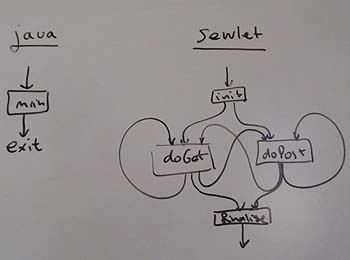 java
main
exit
servlet
init
doGet
doPost
finalize